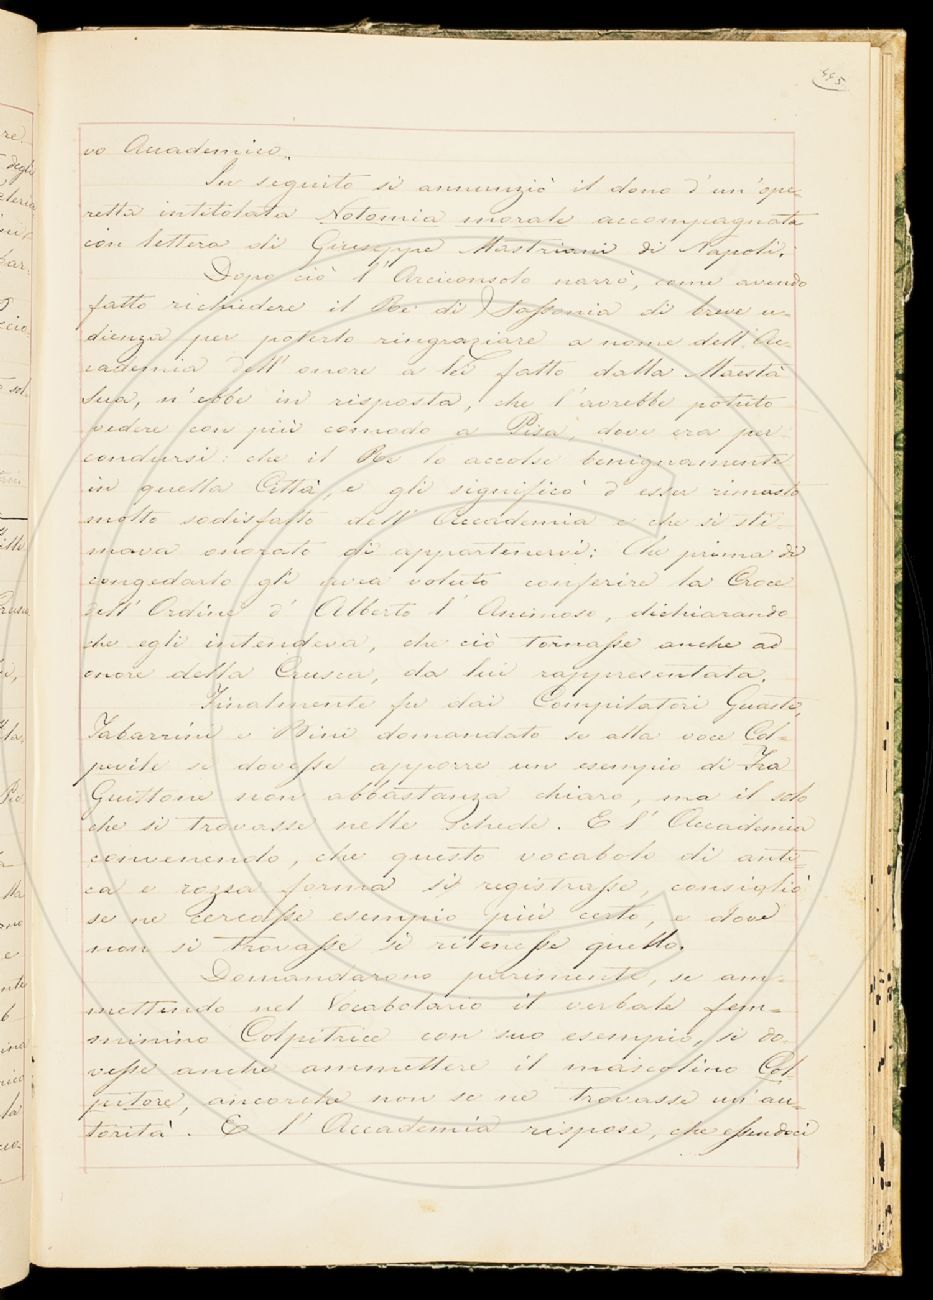 445
vo Accademico.
In seguito si annunziò il dono d'un'ope-
retta intitolata Notomia morale accompagnata
con lettera di Giuseppe Mastriani di Napoli.
Dopo ciò l'Arciconsolo narrò, come avendo
fatto richiedere il Re di Sassonia di breve u-
dienza per poterlo ringraziare a nome dell'Ac-
cademia dell'onore a lei fatto dalla Maestà
Sua, n'ebbe in risposta, che l'avrebbe potuto
vedere con più comodo a Pisa, dove era per
condursi: che il Re lo accolse benignamente
in quella Città, e gli significò d'esser rimasto
molto sodisfatto dell'Accademia e che si sti-
mava onorato di appartenervi: Che prima di
congedarlo gli avea voluto conferire la Croce
dell'Ordine d'Alberto l'Animoso, dichiarando
che egli intendeva, che ciò tornasse anche ad
onore della Crusca, da lui rappresentata.
Finalmente fu dai Compilatori Guasti,
Tabarrini e Bini domandato se alla voce Col-
pevile si dovesse apporre un esempio di Fra
Guittone non abbastanza chiaro, ma il solo
che si trovasse nelle Schede. E l'Accademia
convenendo, che questo vocabolo di anti-
ca e rozza forma si registrasse, consigliò
se ne cercasse esempio più certo, e dove
non si trovasse si ritenesse quello.
Domandarono parimente, se am-
mettendo nel Vocabolario il verbale fem-
minino Colpitrice con suo esempio, si do-
vesse anche ammettere il mascolino Col-
pitore, ancorchè non se ne trovasse un'au-
torità. E l'Accademia rispose, che essendoci